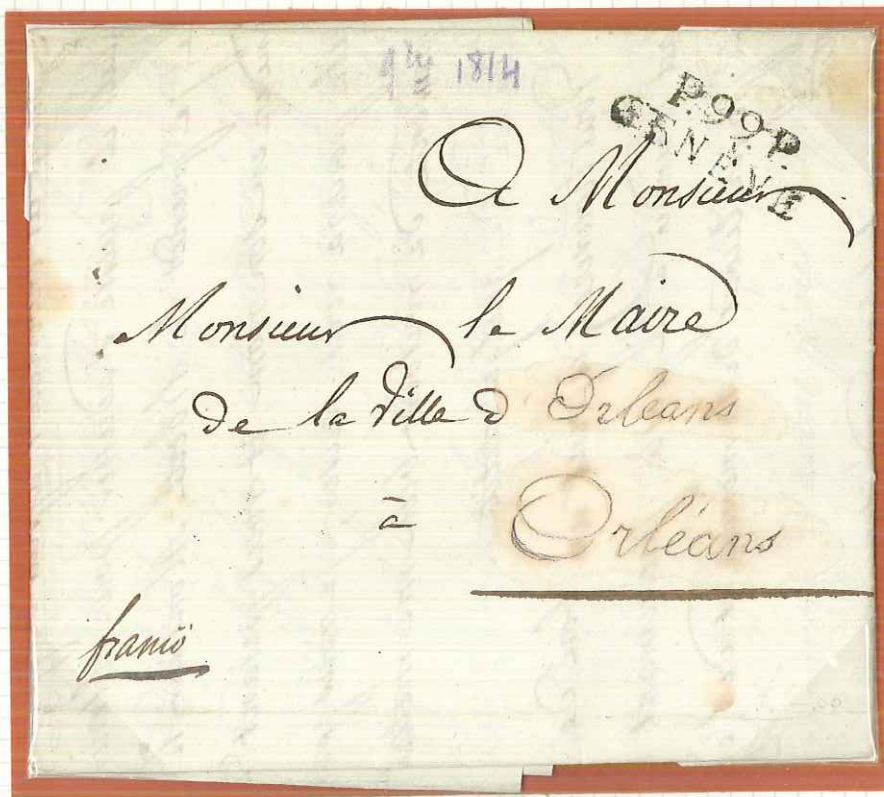 1814
P.99.P.
GENEVE
A Monsieur
Monsieur le Maire
de la Ville d'Orleans
à
Orléans
franco